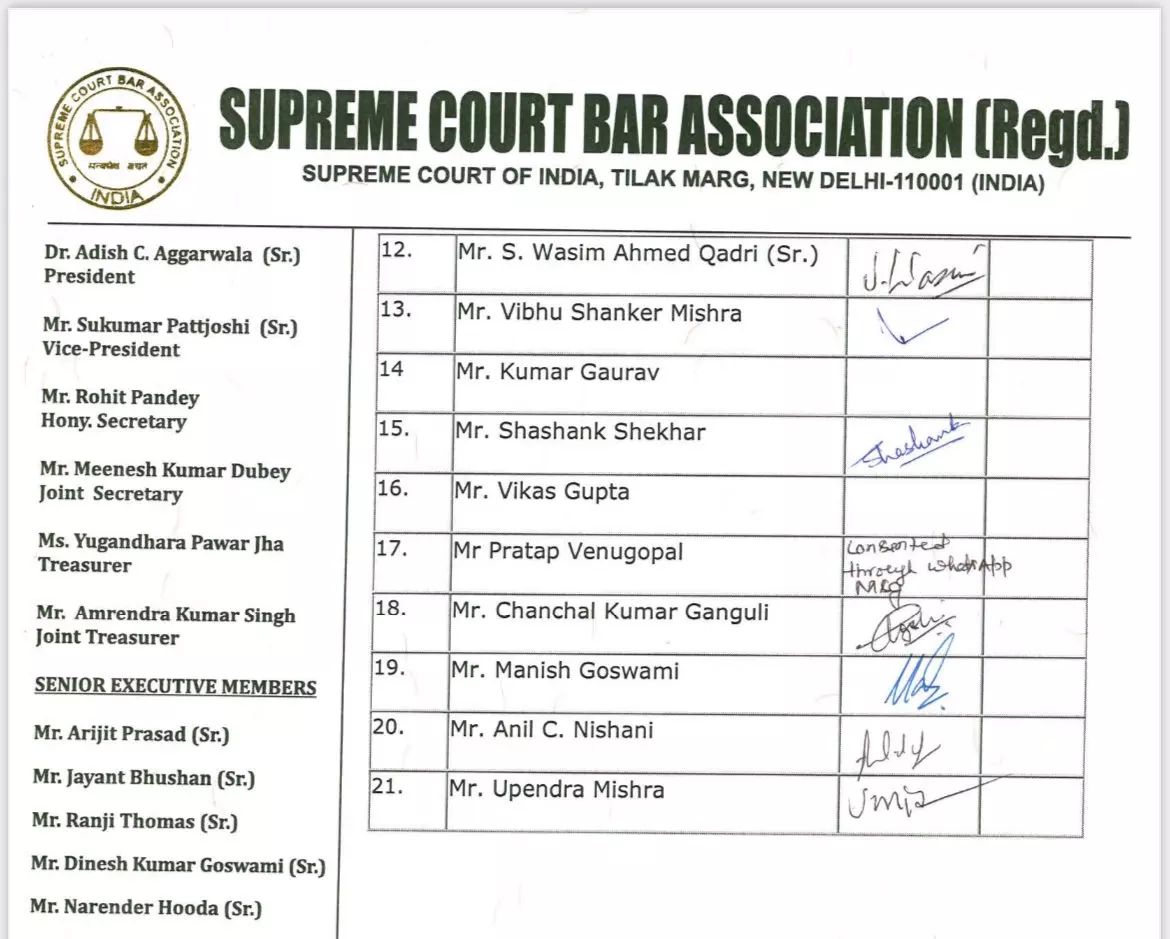 SUPREME COURT BAR ASSOCIATION
INDIA
SUPREME COURT BAR ASSOCIATION (Regd.)
SUPREME COURT OF INDIA, TILAK MARG, NEW DELHI-110001 (INDIA)
Dr. Adish C. Aggarwala (Sr.)
President
Mr. Sukumar Pattjoshi (Sr.)
Vice-President
Mr. Rohit Pandey
Hony. Secretary
Mr. Meenesh Kumar Dubey
Joint Secretary
Ms. Yugandhara Pawar Jha
Treasurer
Mr. Amrendra Kumar Singh
Joint Treasurer
SENIOR EXECUTIVE MEMBERS
Mr. Arijit Prasad (Sr.)
Mr. Jayant Bhushan (Sr.)
Mr. Ranji Thomas (Sr.)
Mr. Dinesh Kumar Goswami (Sr.)
Mr. Narender Hooda (Sr.)
12. Mr. S. Wasim Ahmed Qadri (Sr.) S. Wasim
13. Mr. Vibhu Shanker Mishra
14 Mr. Kumar Gaurav
15. Mr. Shashank Shekhar Shashank
16. Mr. Vikas Gupta
17. Mr Pratap Venugopal Consented
through WhatsApp
Msg
18. Mr. Chanchal Kumar Ganguli
19. Mr. Manish Goswami
20. Mr. Anil C. Nishani
21. Mr. Upendra Mishra